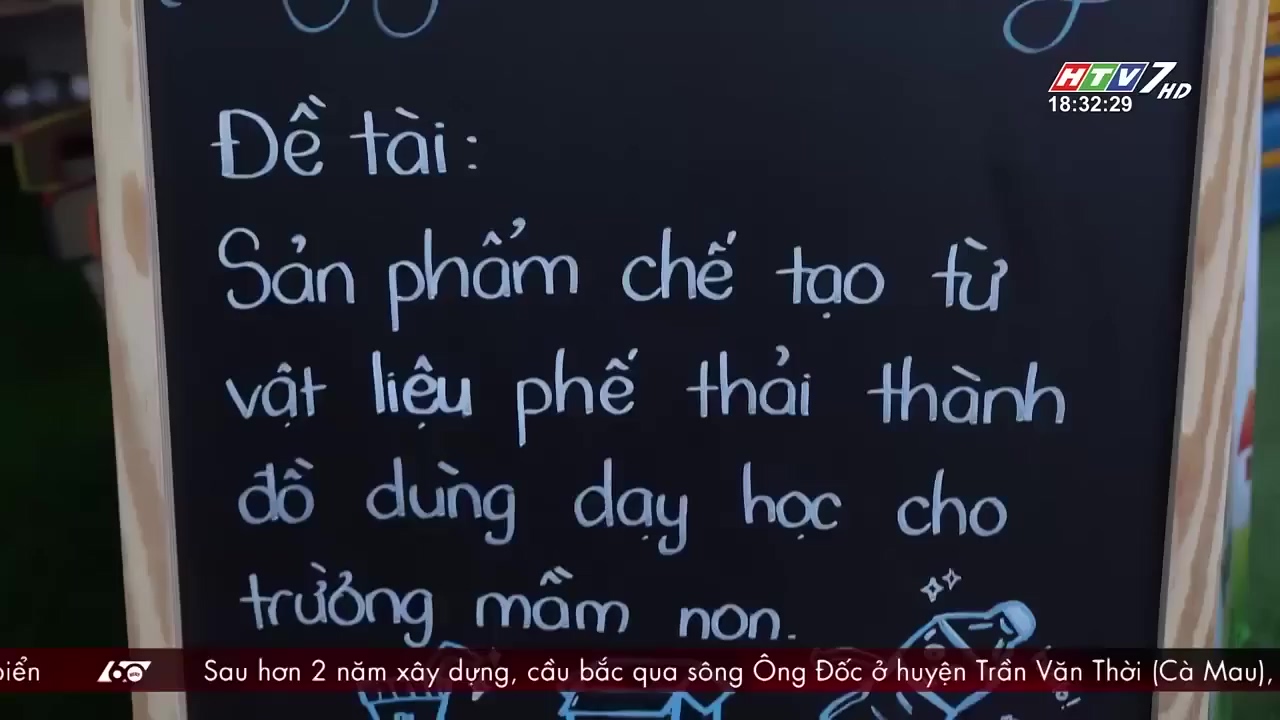 HTV7 HD
18:32:29
Đề tài:
Sản phẩm chế tạo từ
vật liệu phế thải thành
đồ dùng dạy học cho
trường mầm non.
biển 60 Sau hơn 2 năm xây dựng, cầu bắc qua sông Ông Đốc ở huyện Trần Văn Thời (Cà Mau),